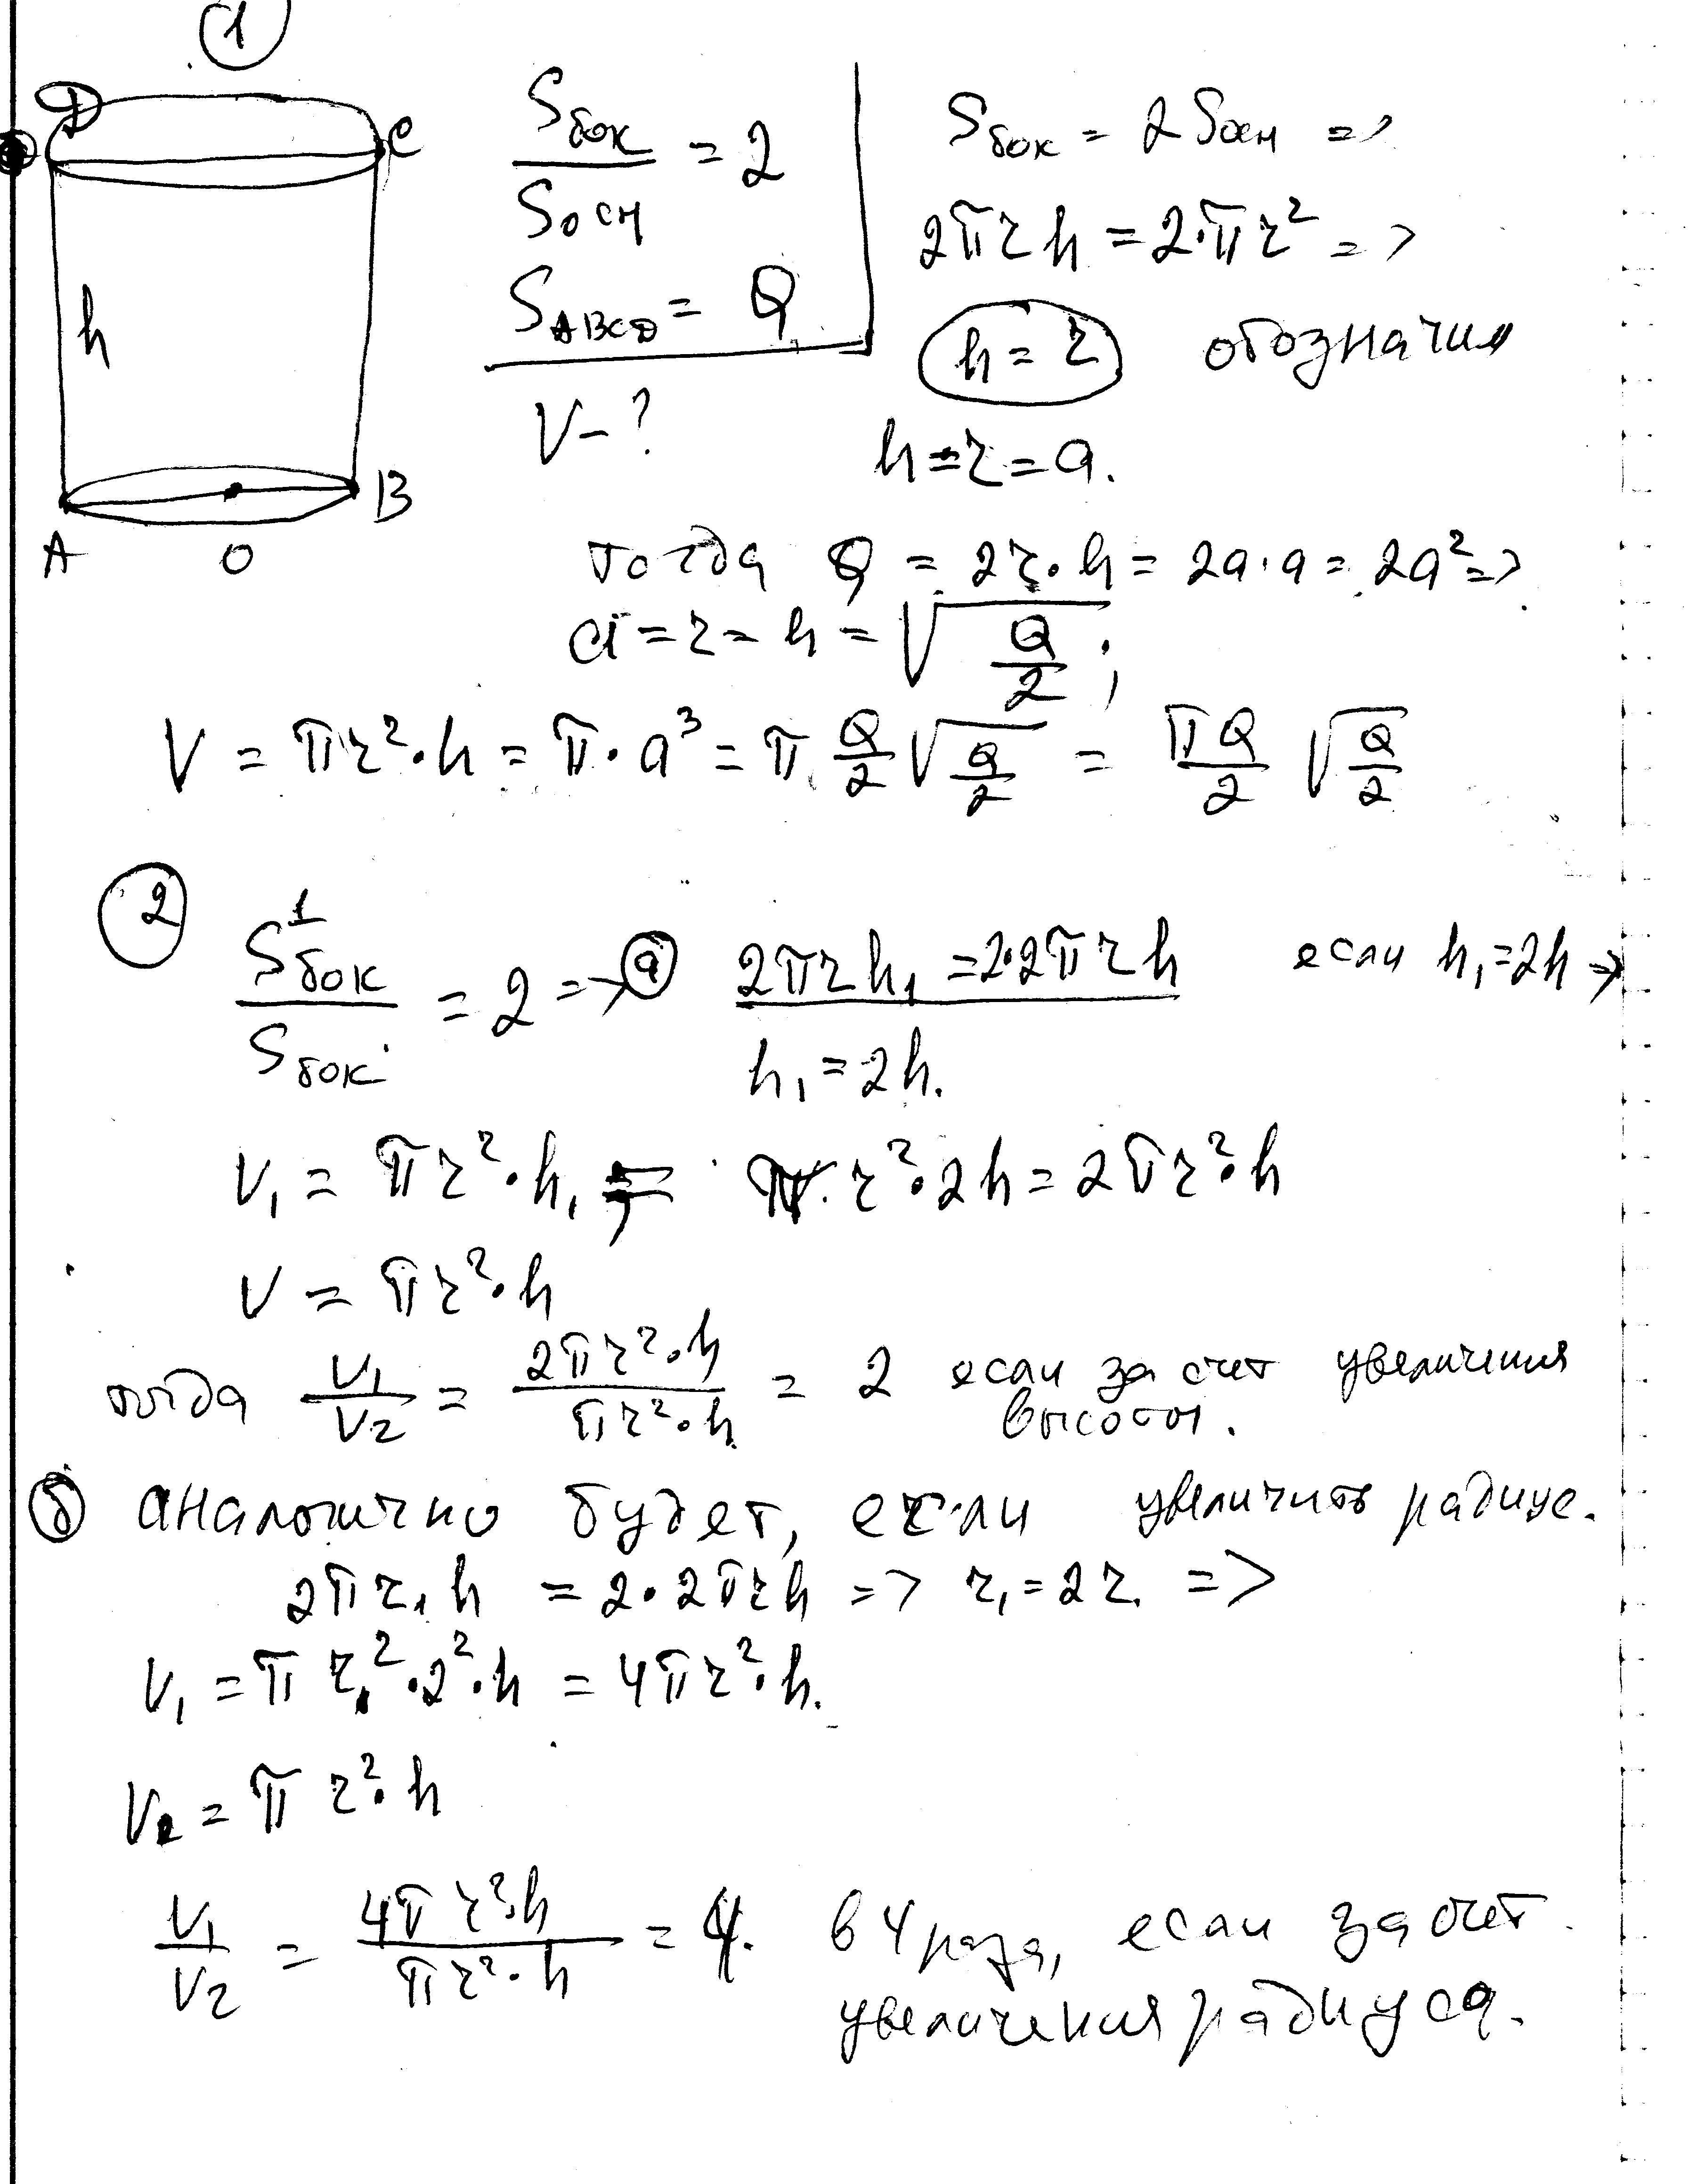 1
D C
h
A O B
Sбок / Sосн = 2
SABCD = Q
V – ?
Sбок = 2Sосн =>
2πrh = 2·πr² =>
h = r обозначим
h = r = a.
тогда Q = 2r·h = 2a·a = 2a² =>
a = r = h = √(Q/2);
V = πr²·h = π·a³ = π Q/2 √(Q/2) = πQ/2 √(Q/2)
2
S¹бок / Sбок = 2 => а 2πrh₁ = 2·2πrh если h₁ = 2h =>
h₁ = 2h.
V₁ = πr²·h₁ = π·r²·2h = 2πr²·h
V = πr²·h
тогда V₁/V₂ = 2πr²·h / πr²·h = 2 если за счет увеличения
высоты.
б аналогично будет, если увеличить радиус.
2πr₁h = 2·2πrh => r₁ = 2r. =>
V₁ = πr²·2²·h = 4πr²·h.
V₂ = πr²·h
V₁/V₂ = 4πr²·h / πr²·h = 4. в 4 раза, если за счет
увеличения радиуса.